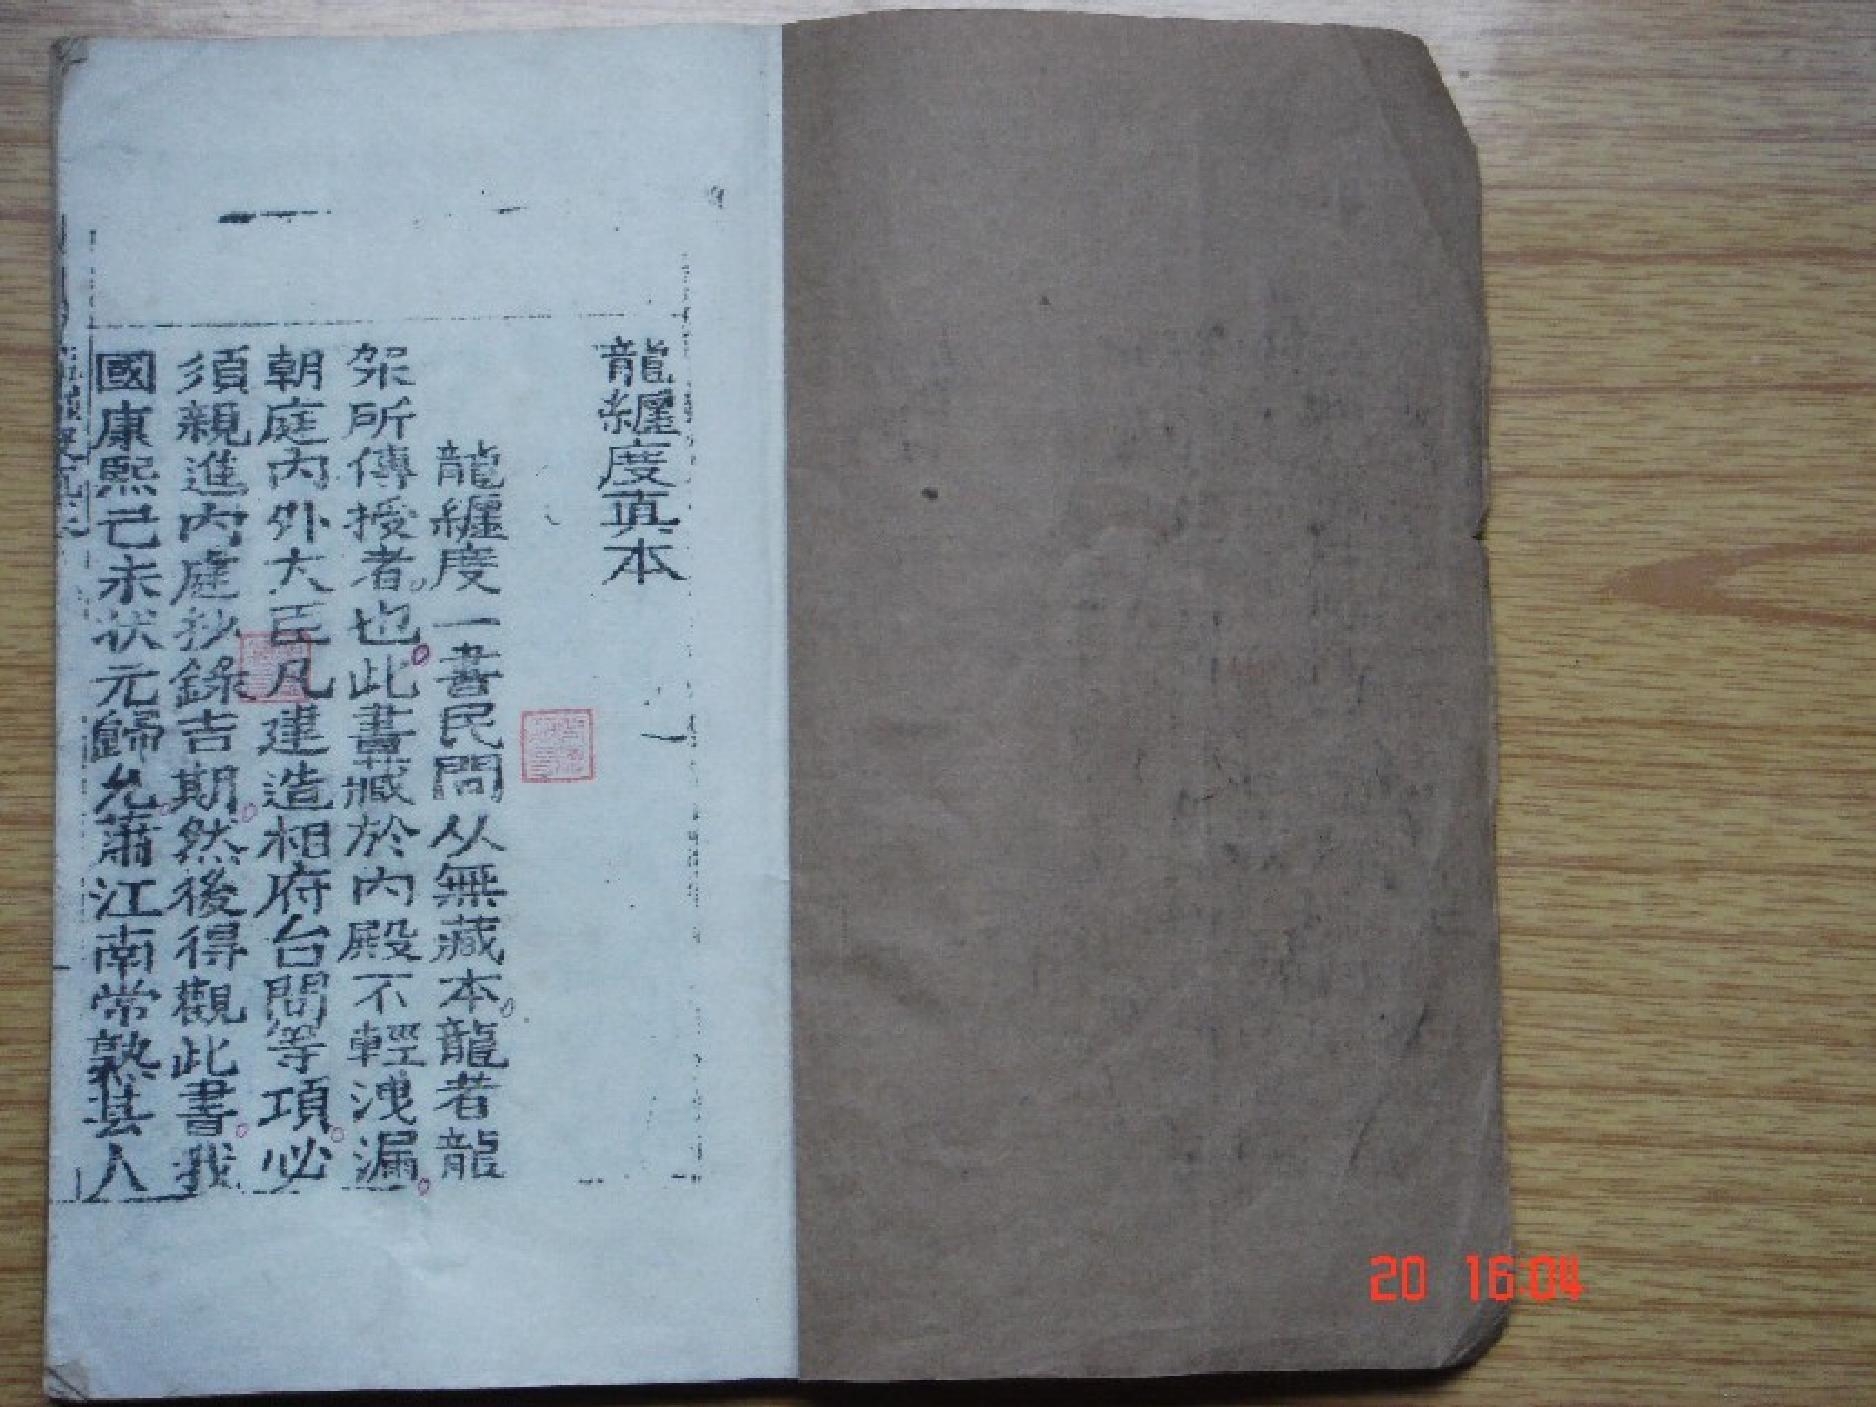 龍纏度真本
龍纏度一書民間从無藏本龍者龍
架所傳授者也此書藏於內殿不輕洩漏
朝庭內外大臣凡建造相府台閣等項必
須親進內庭抄錄吉期然後得觀此書我
國康熙己未状元歸允蕭江南常熟县人
20 16:04